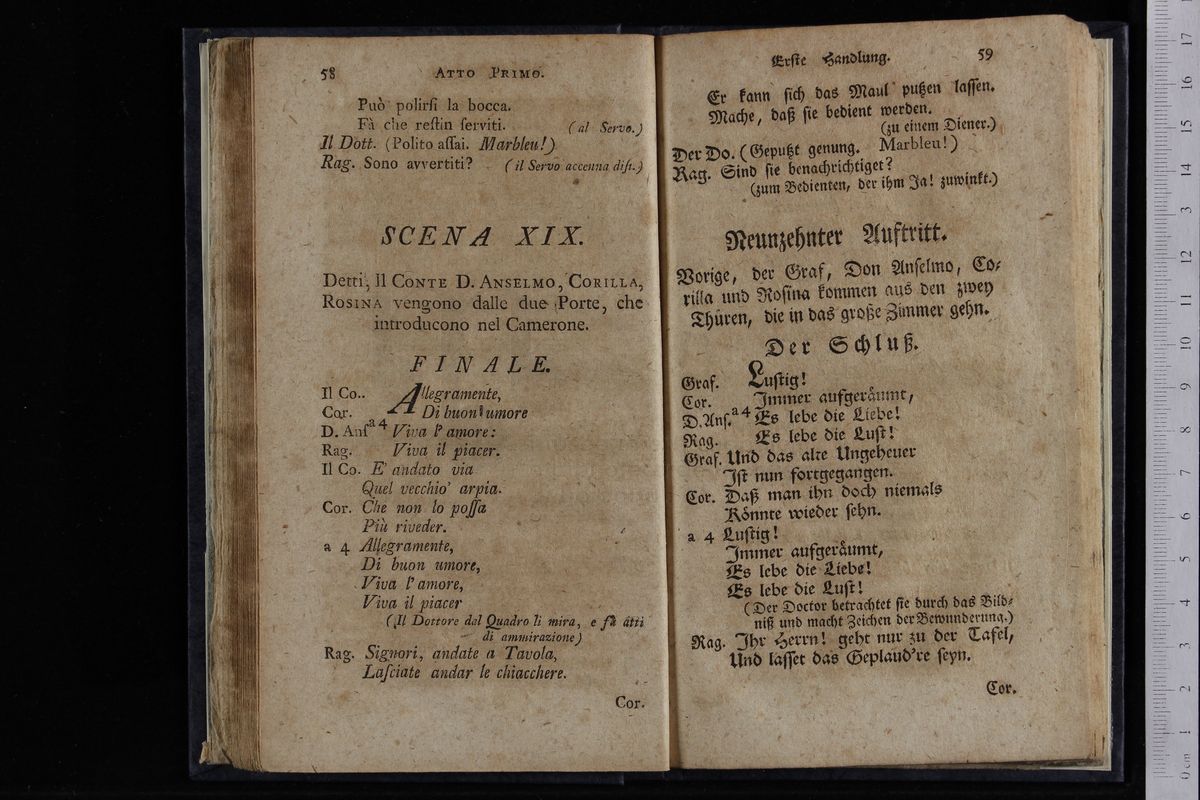 58 ATTO PRIMO.
Può polirſi la bocca.
Fà che reſtin ſerviti. (al Servo.)
Il Dott. (Polito aſſai. Marbleu!)
Rag. Sono avvertiti? (il Servo accenna diſi.)
SCENA XIX.
Detti, Il CONTE D. ANSELMO, CORILLA,
ROSINA vengono dalle due Porte, che
introducono nel Camerone.
FINALE.
Il Co.. Allegramente,
Cor. Di buon umore
D. Anſ a 4 Viva l' amore:
Rag. Viva il piacer.
Il Co. E' andato via
Quel vecchio' arpia.
Cor. Che non lo poſſa
Più riveder.
a 4 Allegramente,
Di buon umore,
Viva l' amore,
Viva il piacer
(Il Dottore dal Quadro li mira, e fà atti
di ammirazione)
Rag. Signori, andate a Tavola,
Laſciate andar le chiacchere.
Cor.
Erſte Handlung. 59
Er kann ſich das Maul putzen laſſen.
Mache, daß ſie bedient werden.
(zu einem Diener.)
Der Do. (Geputzt genung. Marbleu!)
Rag. Sind ſie benachrichtiget?
(zum Bedienten, der ihm Ja! zuwinkt.)
Neunzehnter Auftritt.
Vorige, der Graf, Don Anſelmo, Co⸗
rilla und Roſina kommen aus den zwey
Thüren, die in das große Zimmer gehn.
Der Schluß.
Graf. Luſtig!
Cor. Immer aufgeräumt,
D. Anſ. a 4 Es lebe die Liebe!
Rag. Es lebe die Luſt!
Graf. Und das alte Ungeheuer
Iſt nun fortgegangen.
Cor. Daß man ihn doch niemals
Könnte wieder ſehn.
a 4 Luſtig!
Immer aufgeräumt,
Es lebe die Liebe!
Es lebe die Luſt!
(Der Doctor betrachtet ſie durch das Bild⸗
niß und macht Zeichen der Bewunderung.)
Rag. Ihr Herrn! geht nur zu der Tafel,
Und laſſet das Geplaud're ſeyn.
Cor.
17
16
15
14
13
12
11
10
9
8
7
6
5
4
3
2
1
0 cm